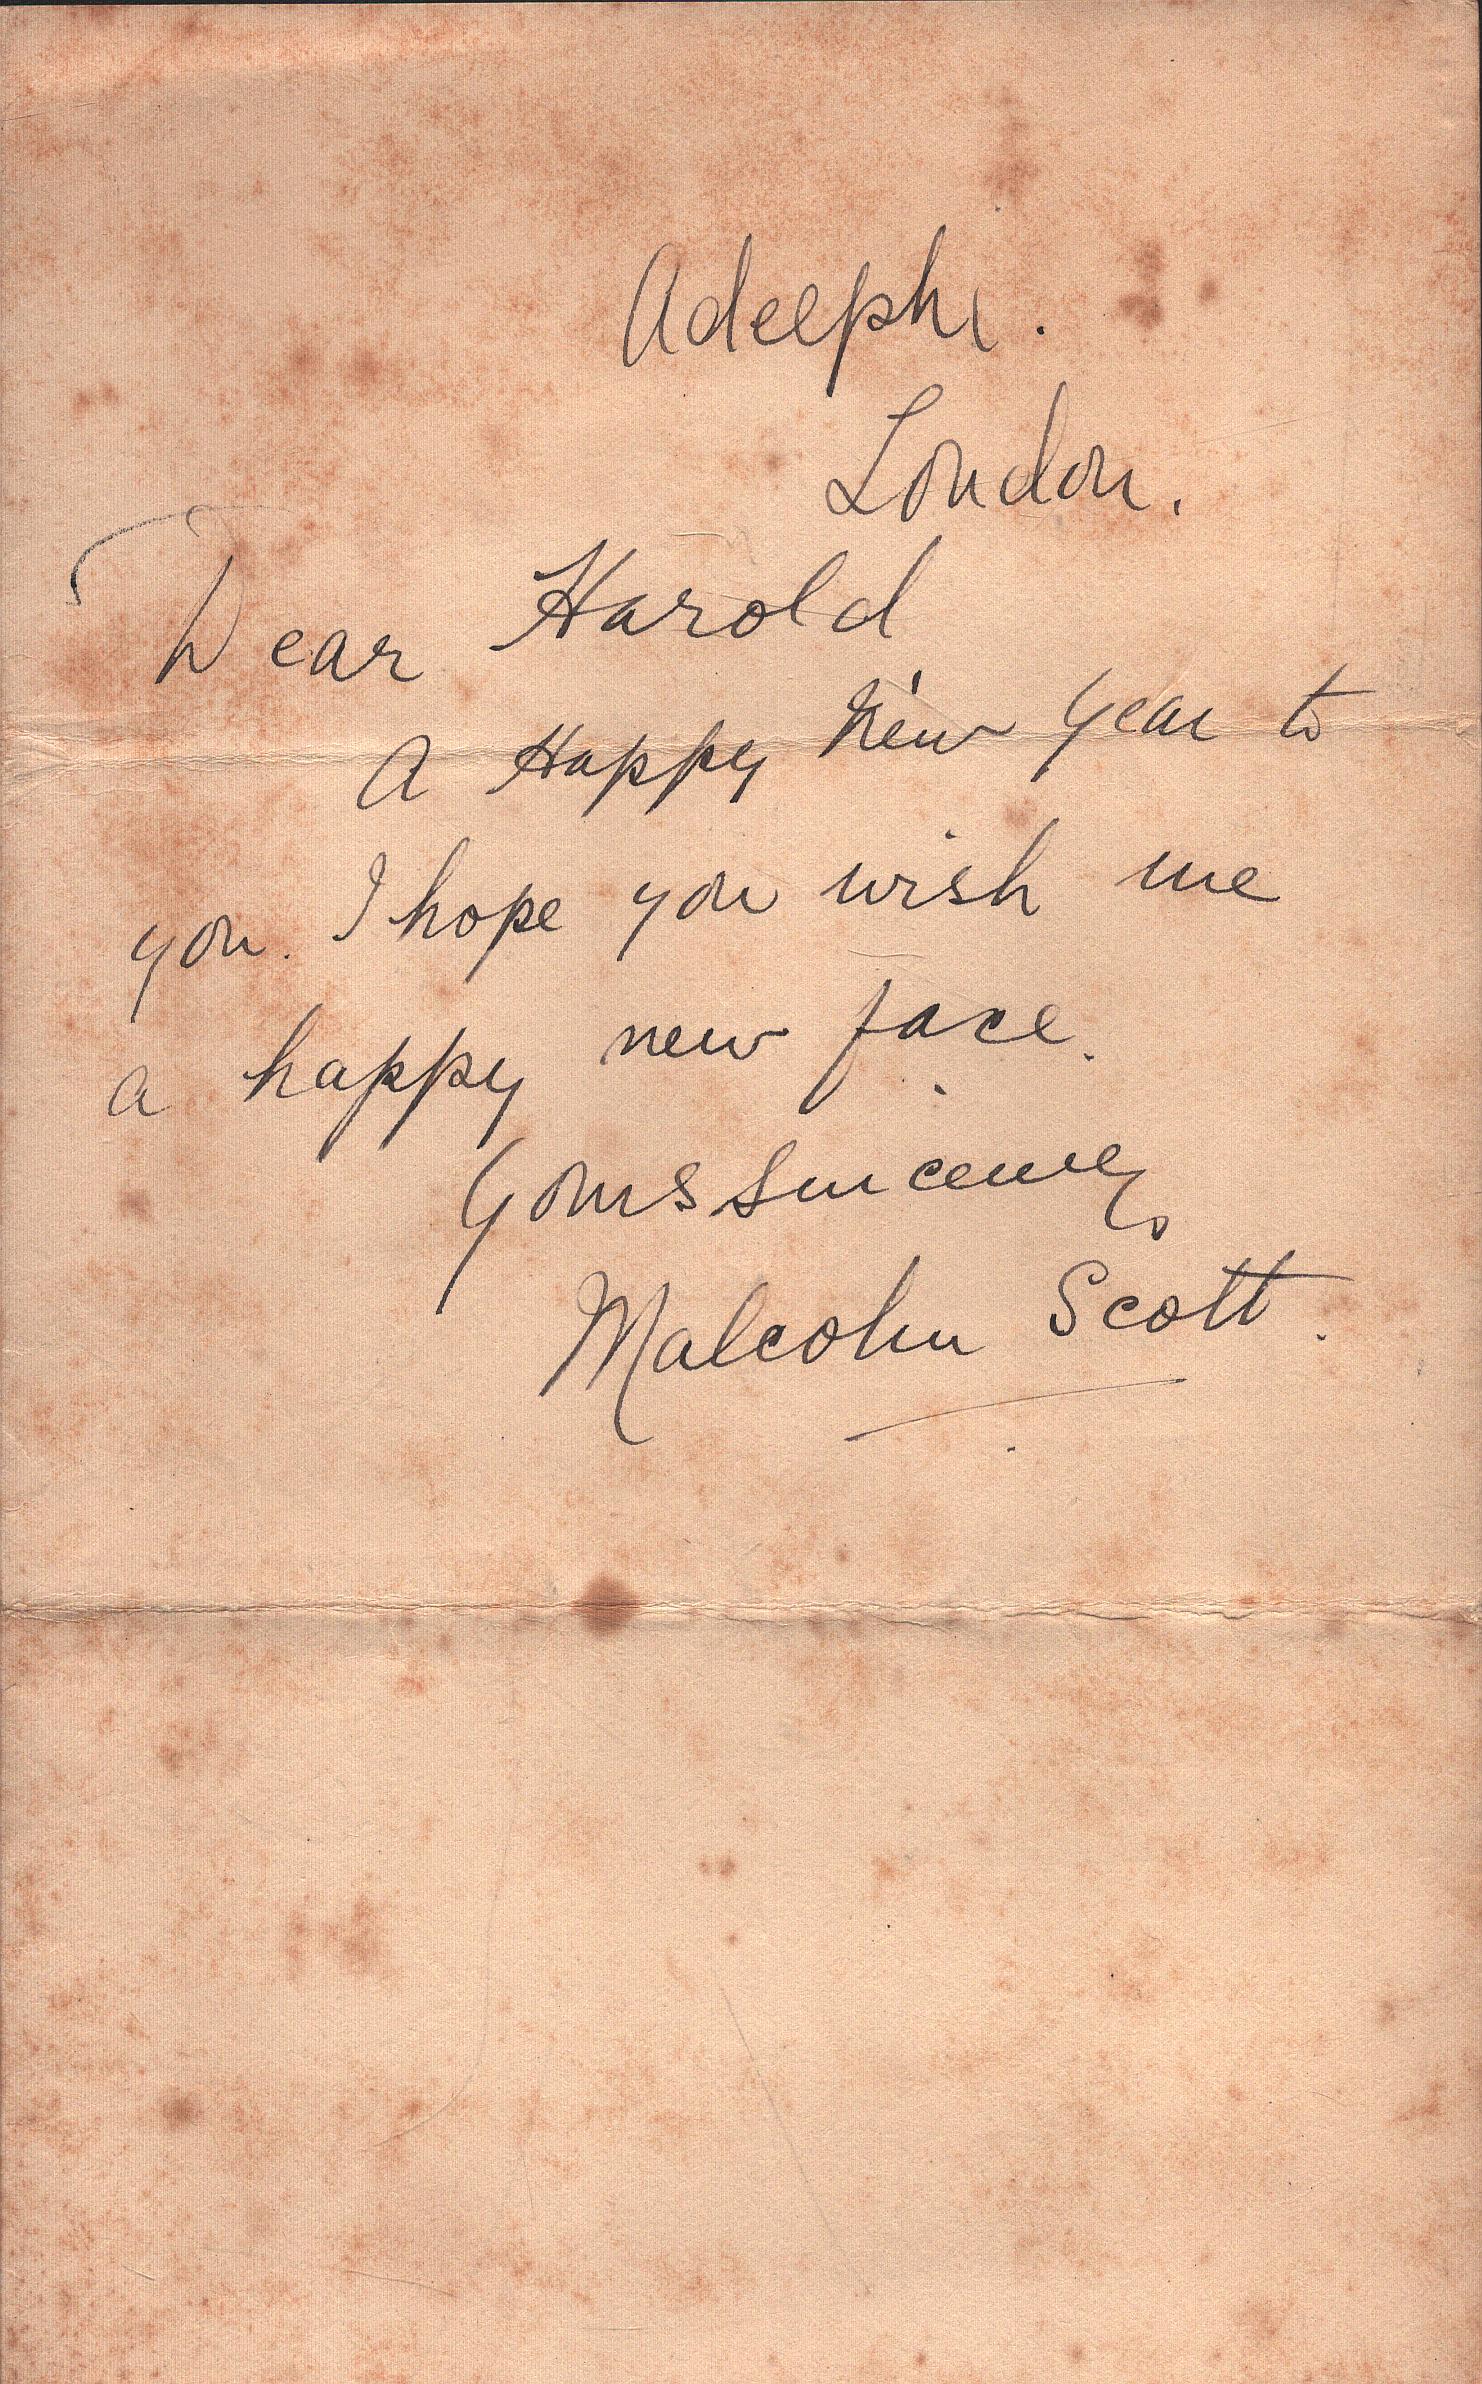 Adelphi.
London.
Dear Harold
A Happy New Year to
you. I hope you wish me
a happy new face.
Yours sincerely
Malcolm Scott.